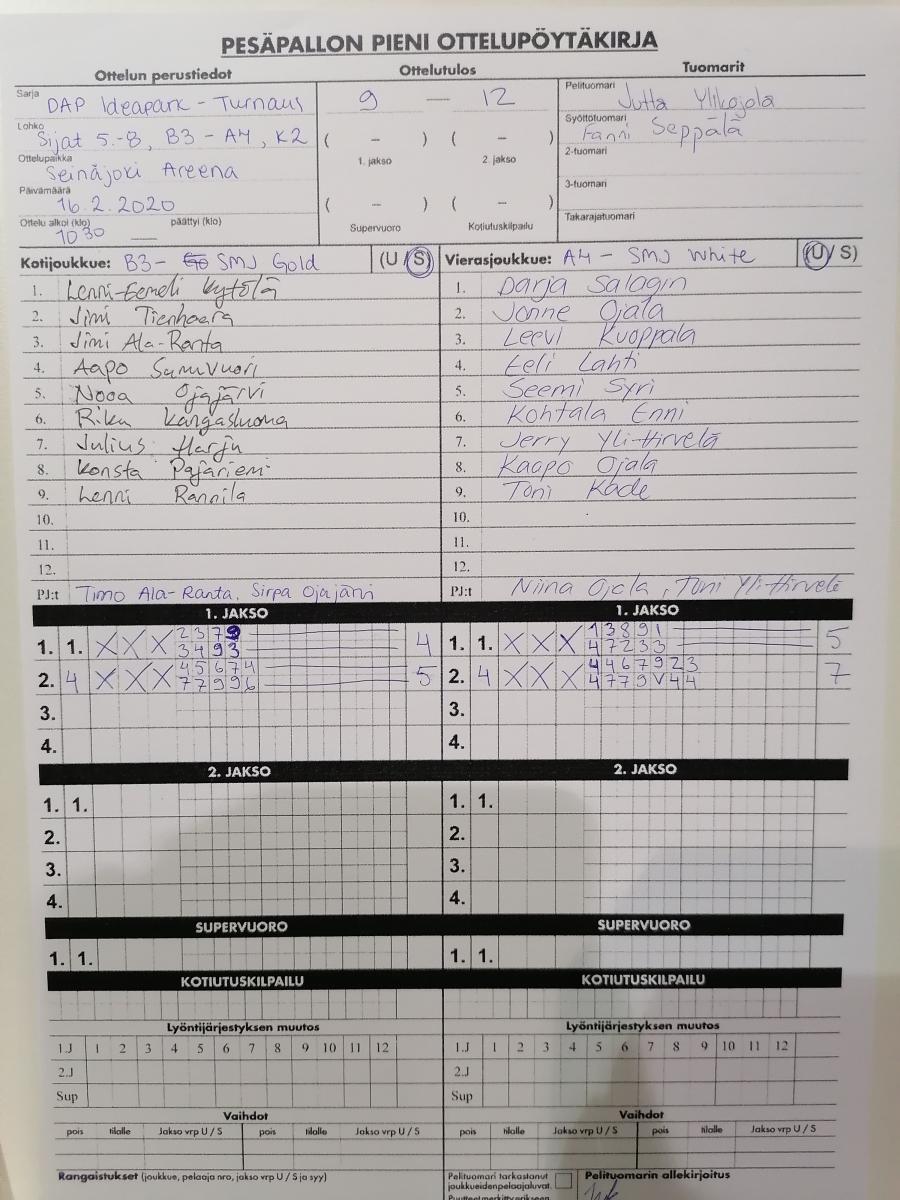 PESÄPALLON PIENI OTTELUPÖYTÄKIRJA
Ottelun perustiedot
Ottelutulos
Tuomarit
Sarja
DAP Ideapark - Turnaus
9 — 12
Pelituomari
Jutta Ylikojola
Lohko
Sijat 5.-8, B3 - A4, K2
( – ) ( – )
1. jakso 2. jakso
Syöttötuomari
Fanni Seppälä
Ottelupaikka
Seinäjoki Areena
2-tuomari
Päivämäärä
16.2.2020
( – ) ( – )
Supervuoro Kotiutuskilpailu
3-tuomari
Ottelu alkoi (klo) päättyi (klo)
1030 —
Takarajatuomari
Kotijoukkue: B3 - SMJ Gold (U / S)
Vierasjoukkue: A4 - SMJ White (U / S)
1. Lenni-Eemeli Kytölä
1. Darja Salagin
2. Jimi Tienhaara
2. Jonne Ojala
3. Jimi Ala-Ranta
3. Leevi Kuoppala
4. Aapo Sumvuori
4. Eeli Lahti
5. Nooa Ojajärvi
5. Seemi Syri
6. Riku Kangasluoma
6. Kohtala Enni
7. Julius Harju
7. Jerry Yli-Hirvelä
8. Konsta Pajariemi
8. Kaapo Ojala
9. Lenni Rannila
9. Toni Kade
10.
10.
11.
11.
12.
12.
PJ:t Timo Ala-Ranta, Sirpa Ojajärvi
PJ:t Niina Ojala, Toni Yli-Hirvelä
1. JAKSO
1. JAKSO
1. 1. X X X 2379 4
3493
1. 1. X X X 13891 5
47233
2. 4 X X X 45674 5
77996
2. 4 X X X 4467923 7
4779V44
3.
3.
4.
4.
2. JAKSO
2. JAKSO
1. 1.
1. 1.
2.
2.
3.
3.
4.
4.
SUPERVUORO
SUPERVUORO
1. 1.
1. 1.
KOTIUTUSKILPAILU
KOTIUTUSKILPAILU
Lyöntijärjestyksen muutos
Lyöntijärjestyksen muutos
1.J 1 2 3 4 5 6 7 8 9 10 11 12
1.J 1 2 3 4 5 6 7 8 9 10 11 12
2.J
2.J
Sup
Sup
Vaihdot
Vaihdot
pois tilalle Jakso vrp U / S pois tilalle Jakso vrp U / S
pois tilalle Jakso vrp U / S pois tilalle Jakso vrp U / S
Rangaistukset (joukkue, pelaaja nro, jakso vrp U / S ja syy)
Pelituomari tarkastanut
joukkueiden pelaajaluvat.
Pelituomarin allekirjoitus